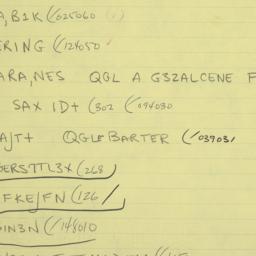 A,B1K (/025060
ERING (/124050
ARA,NES QGL A G3ZALCENE F
SAX ID+ (302 (/094030
A/T+ QGLF BARTER (/039031
GERSTTL3X (268)
FKE/FN (126/
3IN3N (/148010